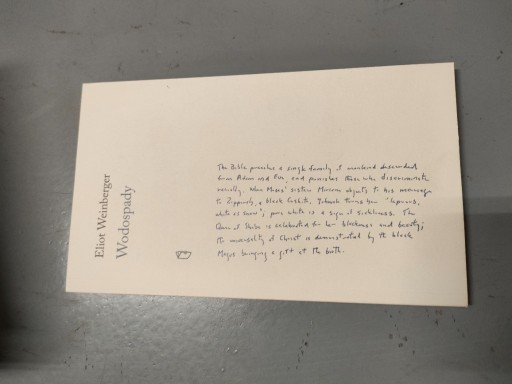 Eliot Weinberger
Wodospady
The Bible preaches a single family of mankind descended
from Adam and Eve, and punishes those who discriminate
racially. When Moses' sister Miriam objects to his marriage
to Zipporah, a black Cushite, Jehovah turns her "leprous,
white as snow"; pure white is a sign of sickliness. The
Queen of Sheba is celebrated for her blackness and beauty;
the universality of Christ is demonstrated by the black
Magus bringing a gift at the birth.